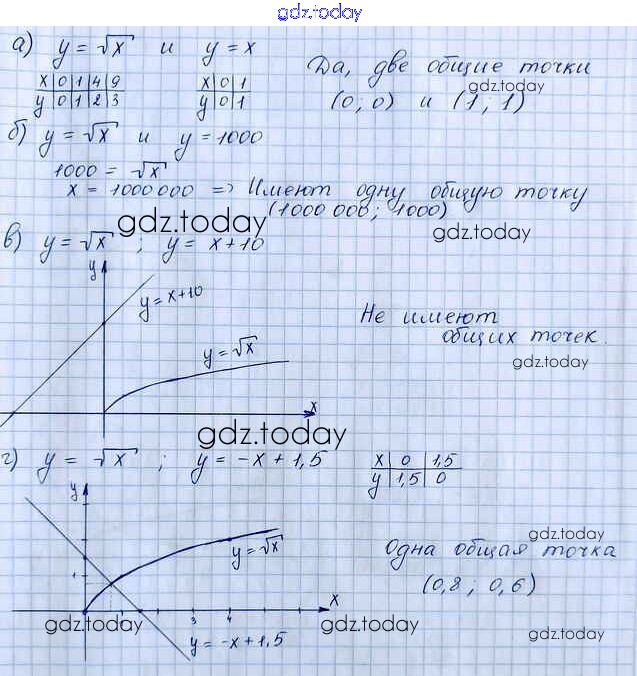 gdz.today
а) y = √x и y = x
x 0 1 4 9
y 0 1 2 3
x 0 1
y 0 1
Да, две общие точки
gdz.today
(0; 0) и (1; 1)
б) y = √x и y = 1000
1000 = √x
x = 1000 000 => Имеют одну общую точку
(1000 000; 1000)
gdz.today
gdz.today
в) y = √x ; y = x+10
y
y = x+10
Не имеют
общих точек.
y = √x
gdz.today
x
gdz.today
г) y = √x ; y = -x + 1,5
x 0 1,5
y 1,5 0
y
gdz.today
y = √x
Одна общая точка
1
(0,8 ; 0,6)
x
3 4
gdz.today
gdz.today
gdz.today
y = -x + 1,5